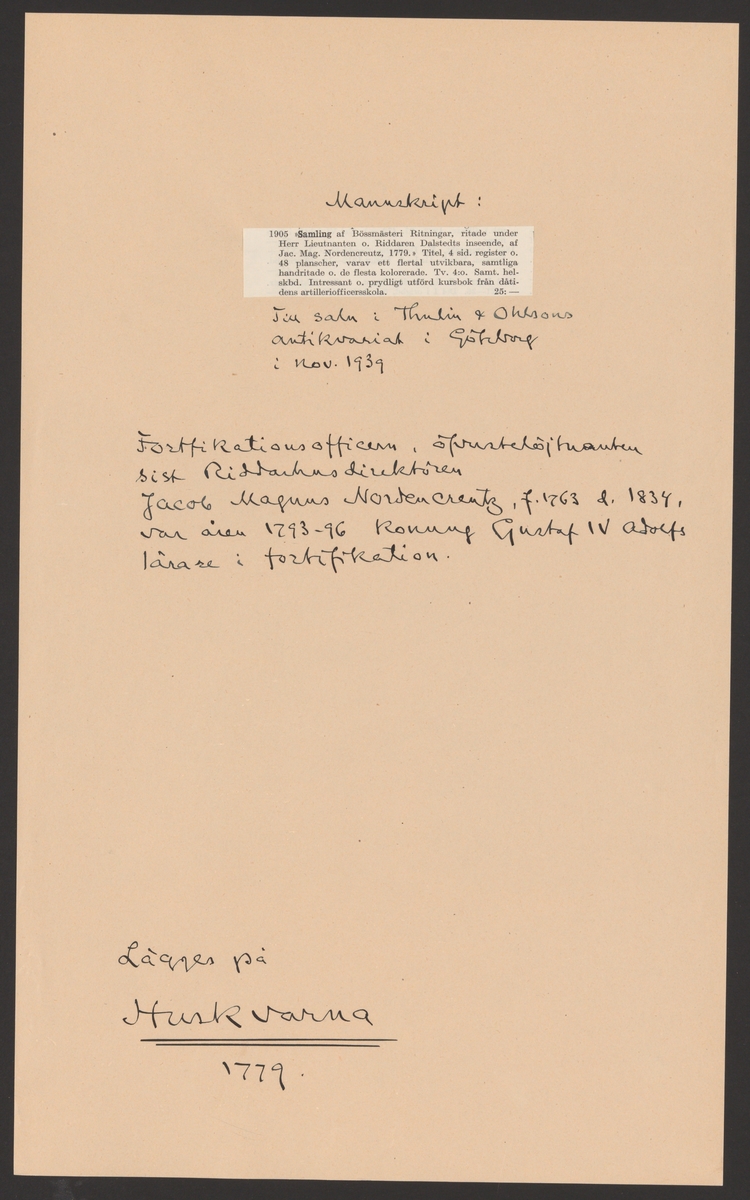 Manuskript:
1905 »Samling af Bössmästeri Ritningar, ritade under
Herr Lieutnanten o. Riddaren Dalstedts inseende, af
Jac. Mag. Nordencreutz, 1779.» Titel, 4 sid. register o.
48 planscher, varav ett flertal utvikbara, samtliga
handritade o. de flesta kolorerade. Tv. 4:o. Samt. hel-
skbd. Intressant o. prydligt utförd kursbok från dåti-
dens artilleriofficersskola. 25: —
Till salu i Thulin & Ohlsons
antikvariat i Göteborg
i nov. 1939
Fortfikationsofficern, öfverstelöjtnanten
sist Riddarhusdirektören
Jacob Magnus Nordencreutz, f. 1763 d. 1834,
var åren 1793-96 Konung Gustaf IV Adolfs
lärare i fortifikation.
Lägges på
Huskvarna
1779.